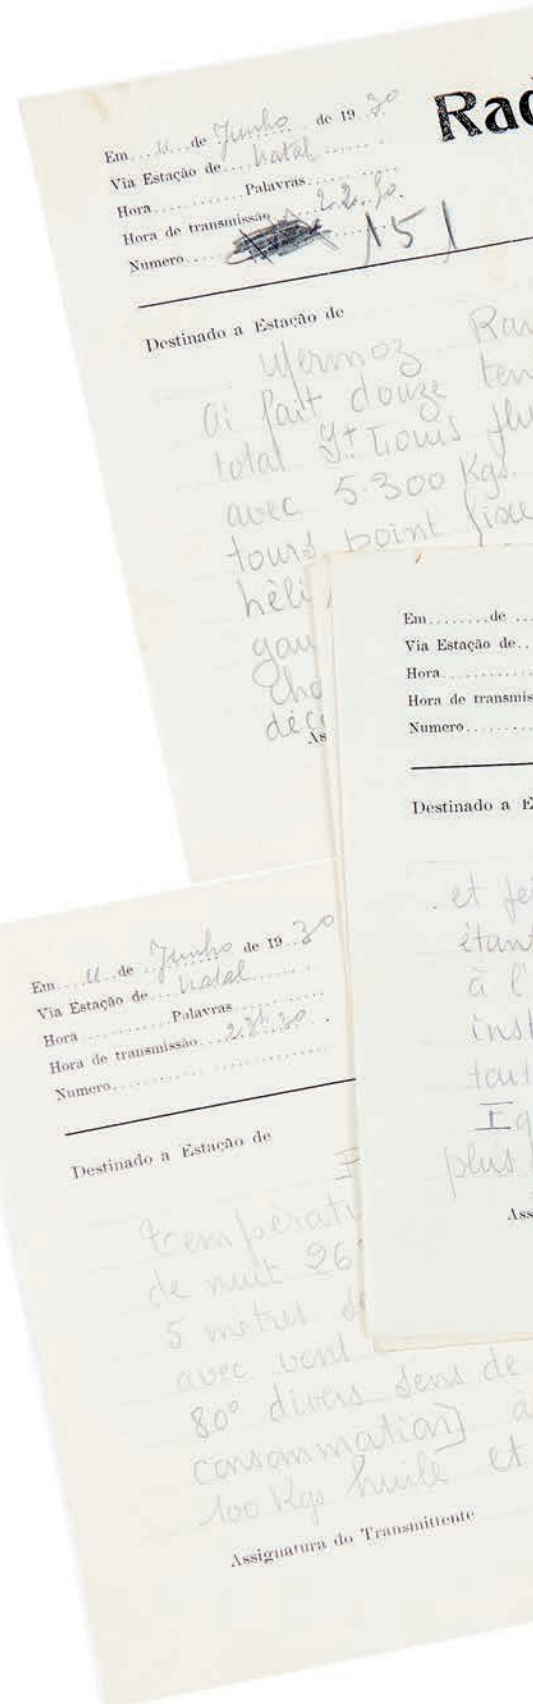 Rad
Em....11..de Junho de 19 30
Via Estação de... Natal
Hora............Palavras............
Hora de transmissão 22.30.
Numero.... 151
Destinado a Estação de
Mermoz
ai fait douze
total St Louis
avec 5.300 Kgs.
tours point fixe
héli
gau
Em........de
Via Estação de..
Hora
Hora de transmis
Numero
Destinado a E
et
étant
à l'
inst
tout
plus
Ass
Em....11..de Junho de 19 30
Via Estação de... Natal
Hora............Palavras............
Hora de transmissão
Numero
Destinado a Estação de
températ
de nuit 26°
5 mètres
avec vent
80° divers sens de
consommation]
100 Kgs huile et
Assignatura do Transmittente